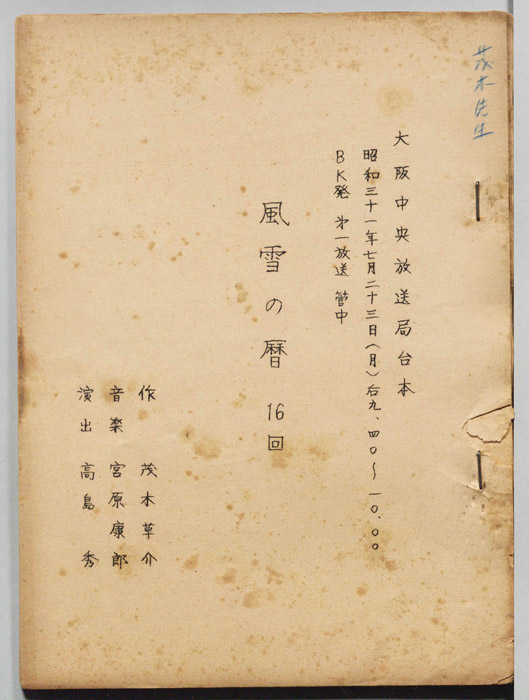 茂木先生
大阪中央放送局台本
昭和三十一年七月二十三日(月)后九、四〇〜一〇、〇〇
BK発 第一放送 管中
風雪の暦 16回
作 茂木草介
音楽 宮原康郎
演出 高島秀